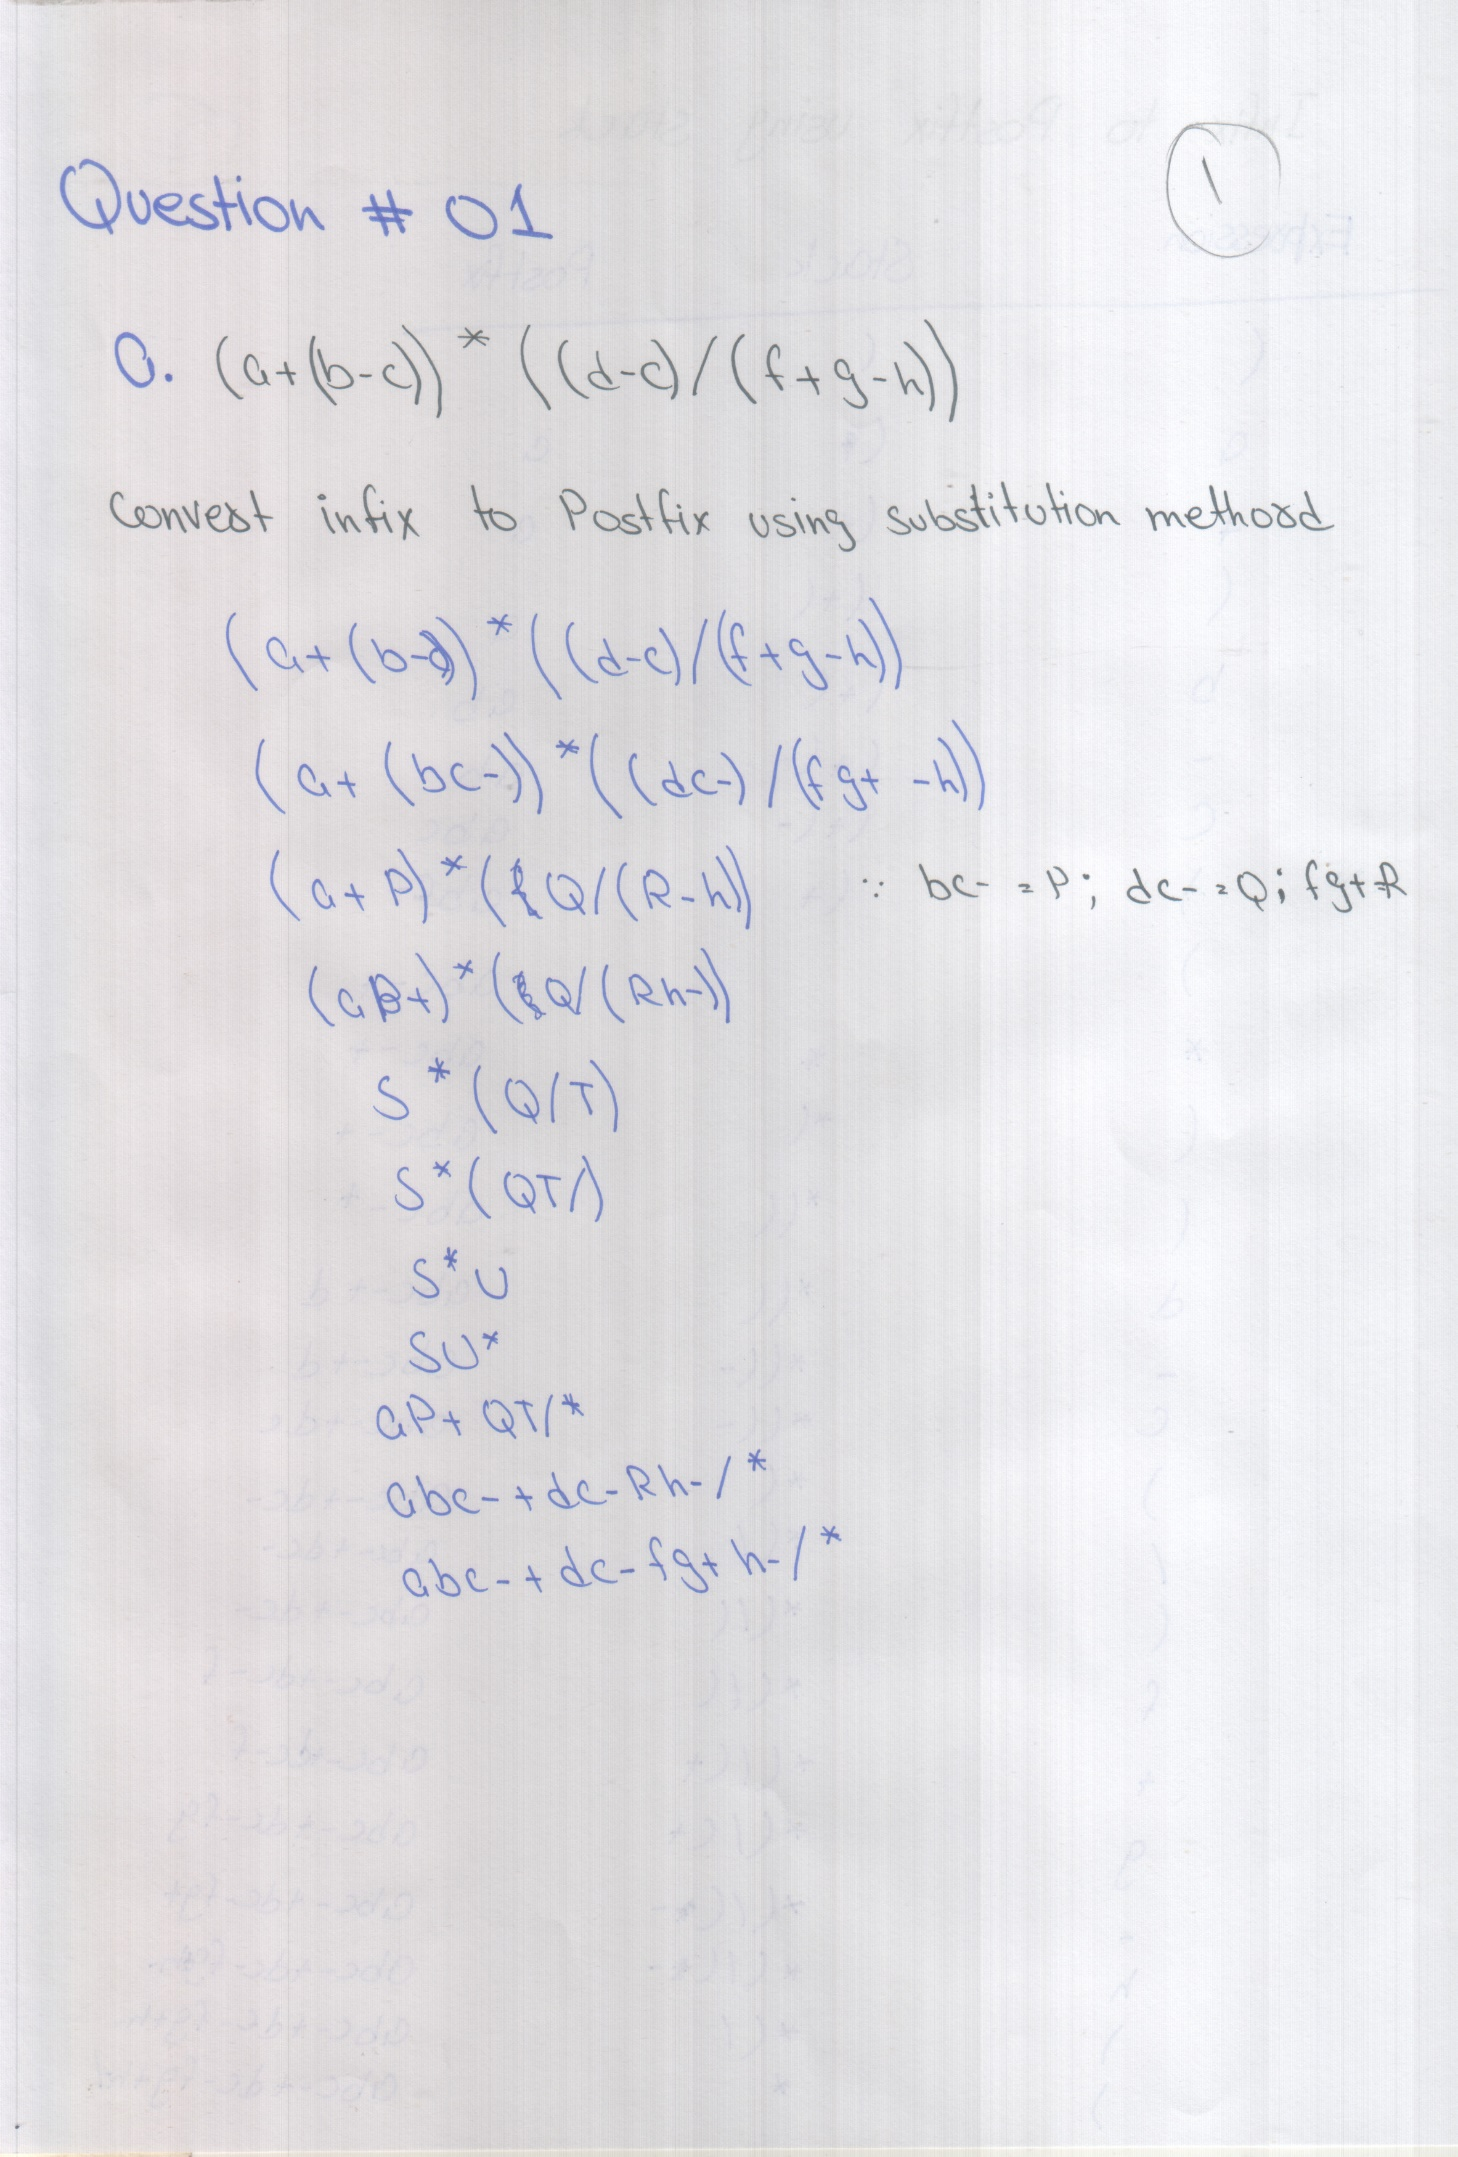 1
Question # 01
a. (a+(b-c)) * ((d-c)/(f+g-h))
Convert infix to Postfix using substitution method
(a+(b-c)) * ((d-c)/(f+g-h))
(a+(bc-)) * ((dc-)/(fg+ -h))
(a+P) * (Q/(R-h)) ∵ bc- = P; dc- = Q; fg+=R
(aP+) * (Q/(Rh-))
S * (Q/T)
S * (QT/)
S * U
SU*
aP+ QT/*
abc-+dc-Rh-/*
abc-+dc-fg+h-/*